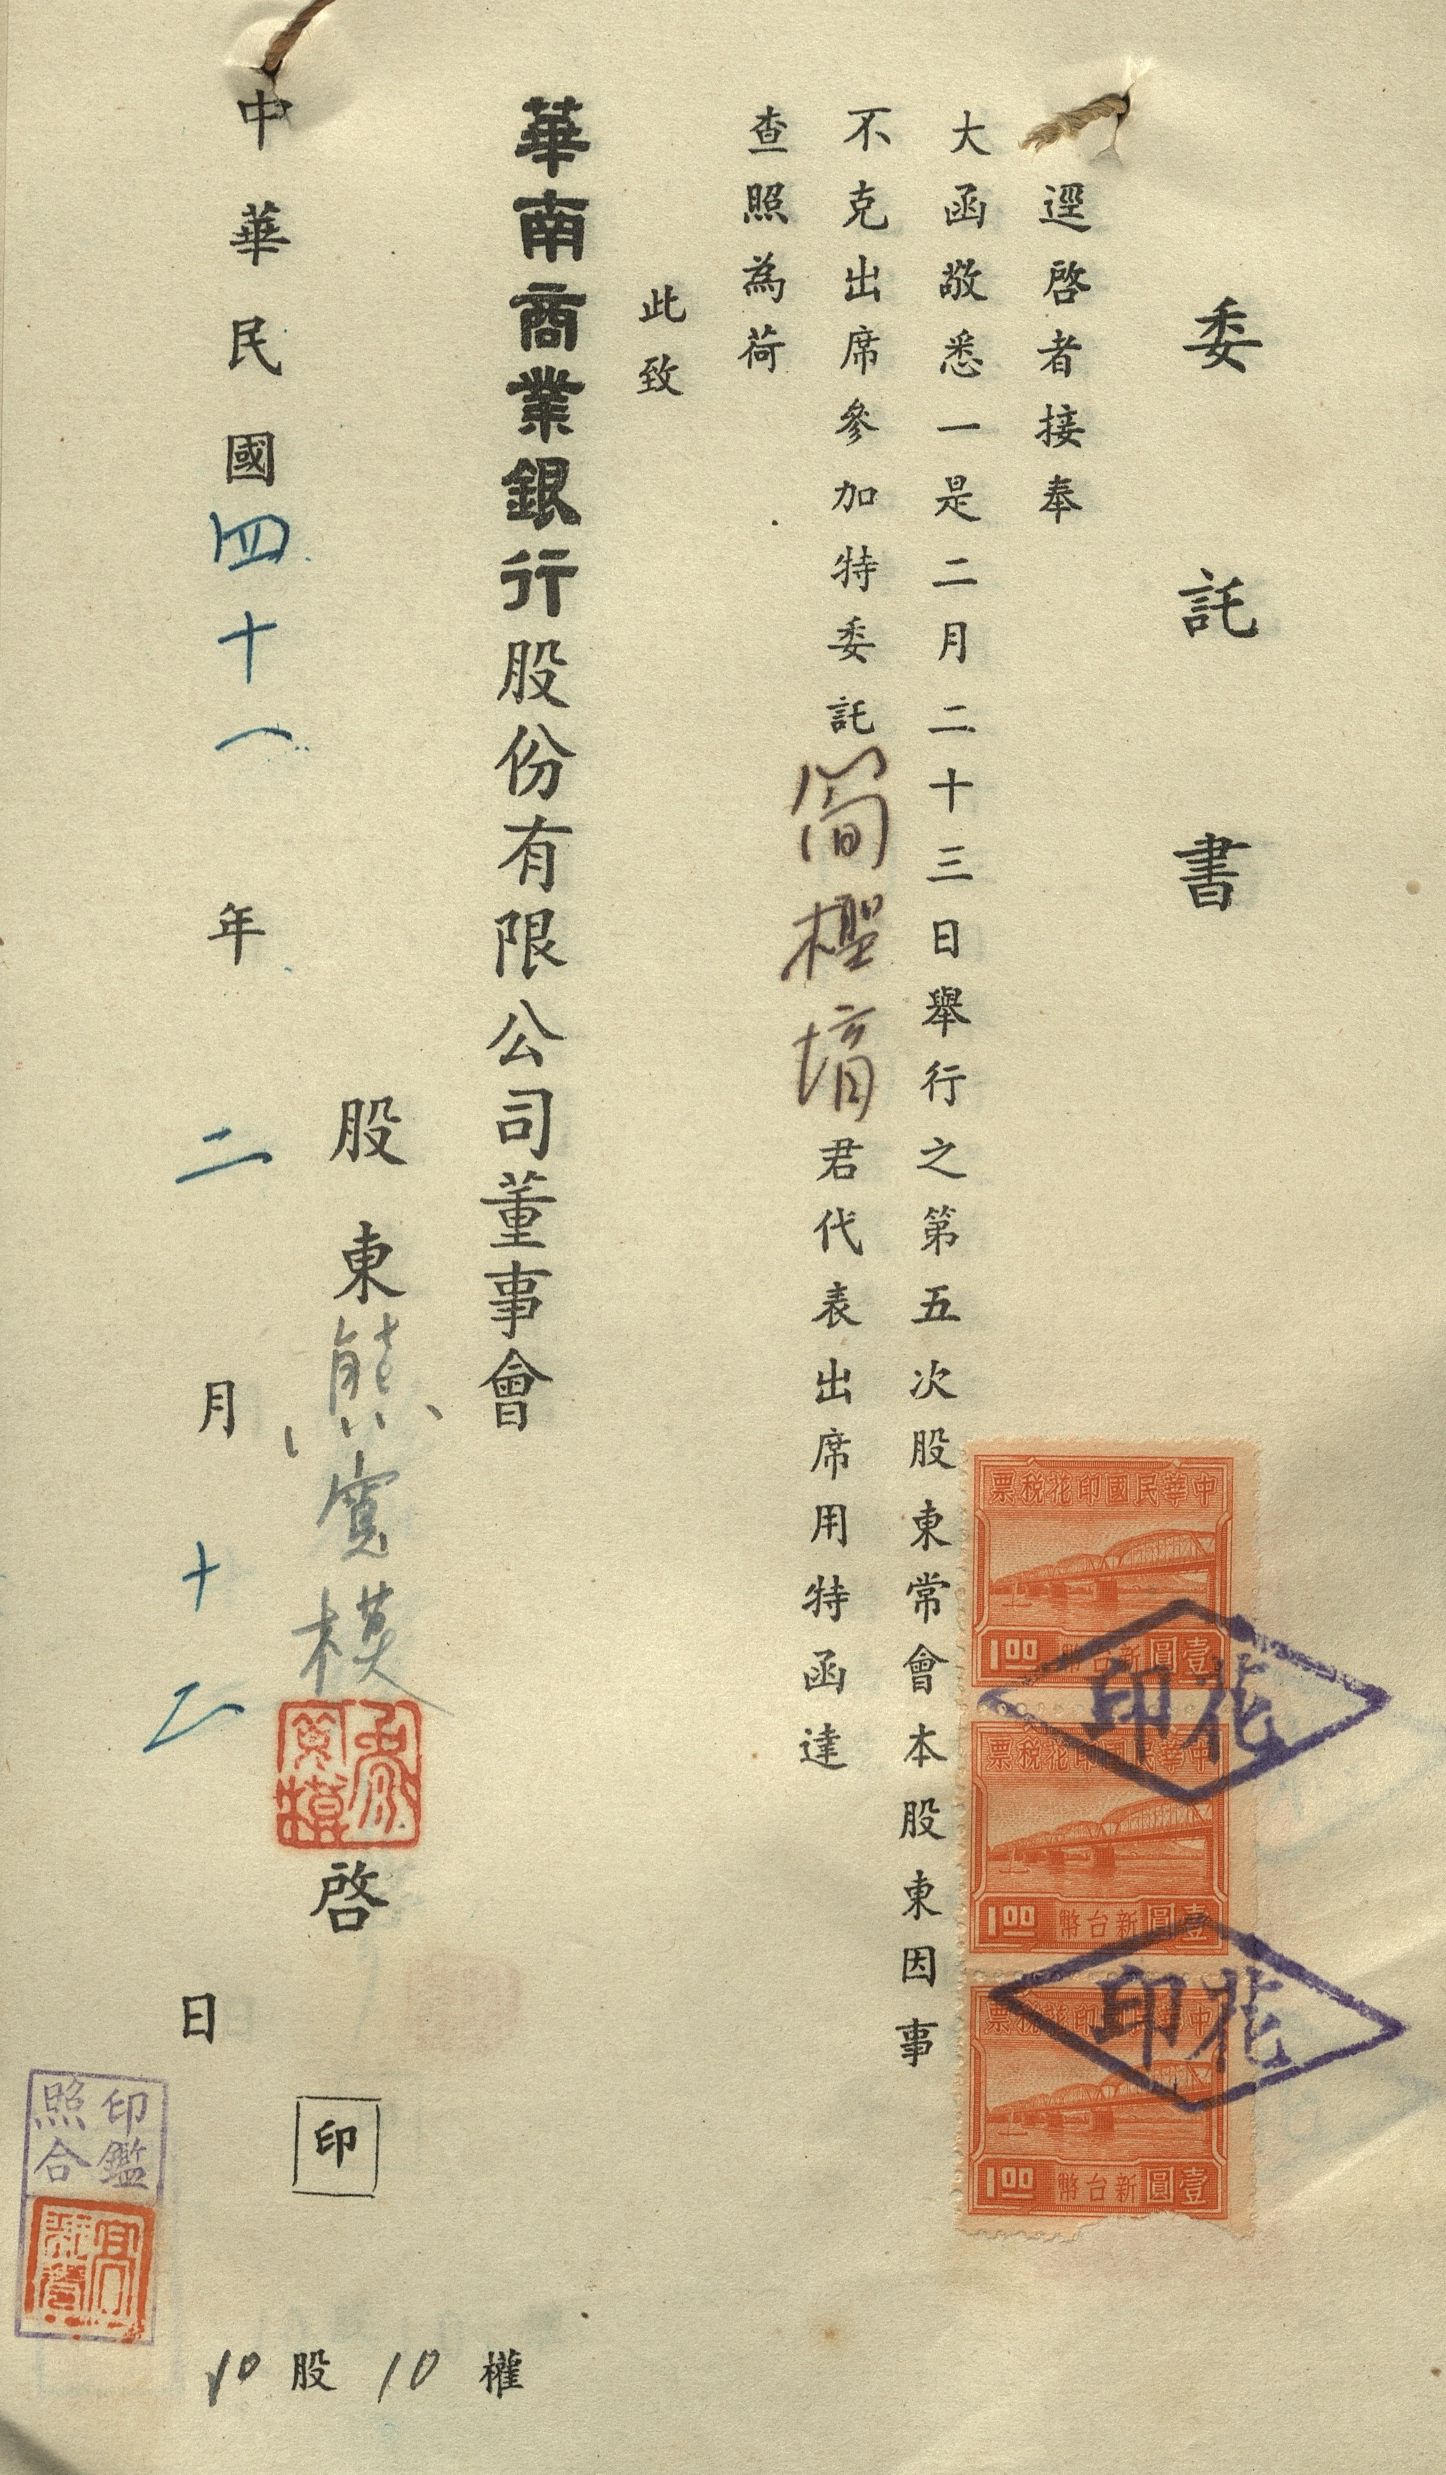 委託書
逕啓者接奉
大函敬悉一是二月二十三日舉行之第五次股東常會本股東因事
不克出席參加特委託簡櫮堉君代表出席用特函達
查照為荷
此致
華南商業銀行股份有限公司董事會
股東熊寬模啓
印
中華民國四十一年二月十二日
10股10權
中華民國印花税票
壹圓新台幣
1.00
中華民國印花税票
壹圓新台幣
1.00
中華民國印花税票
壹圓新台幣
1.00
花印
花印
印鑑
照合